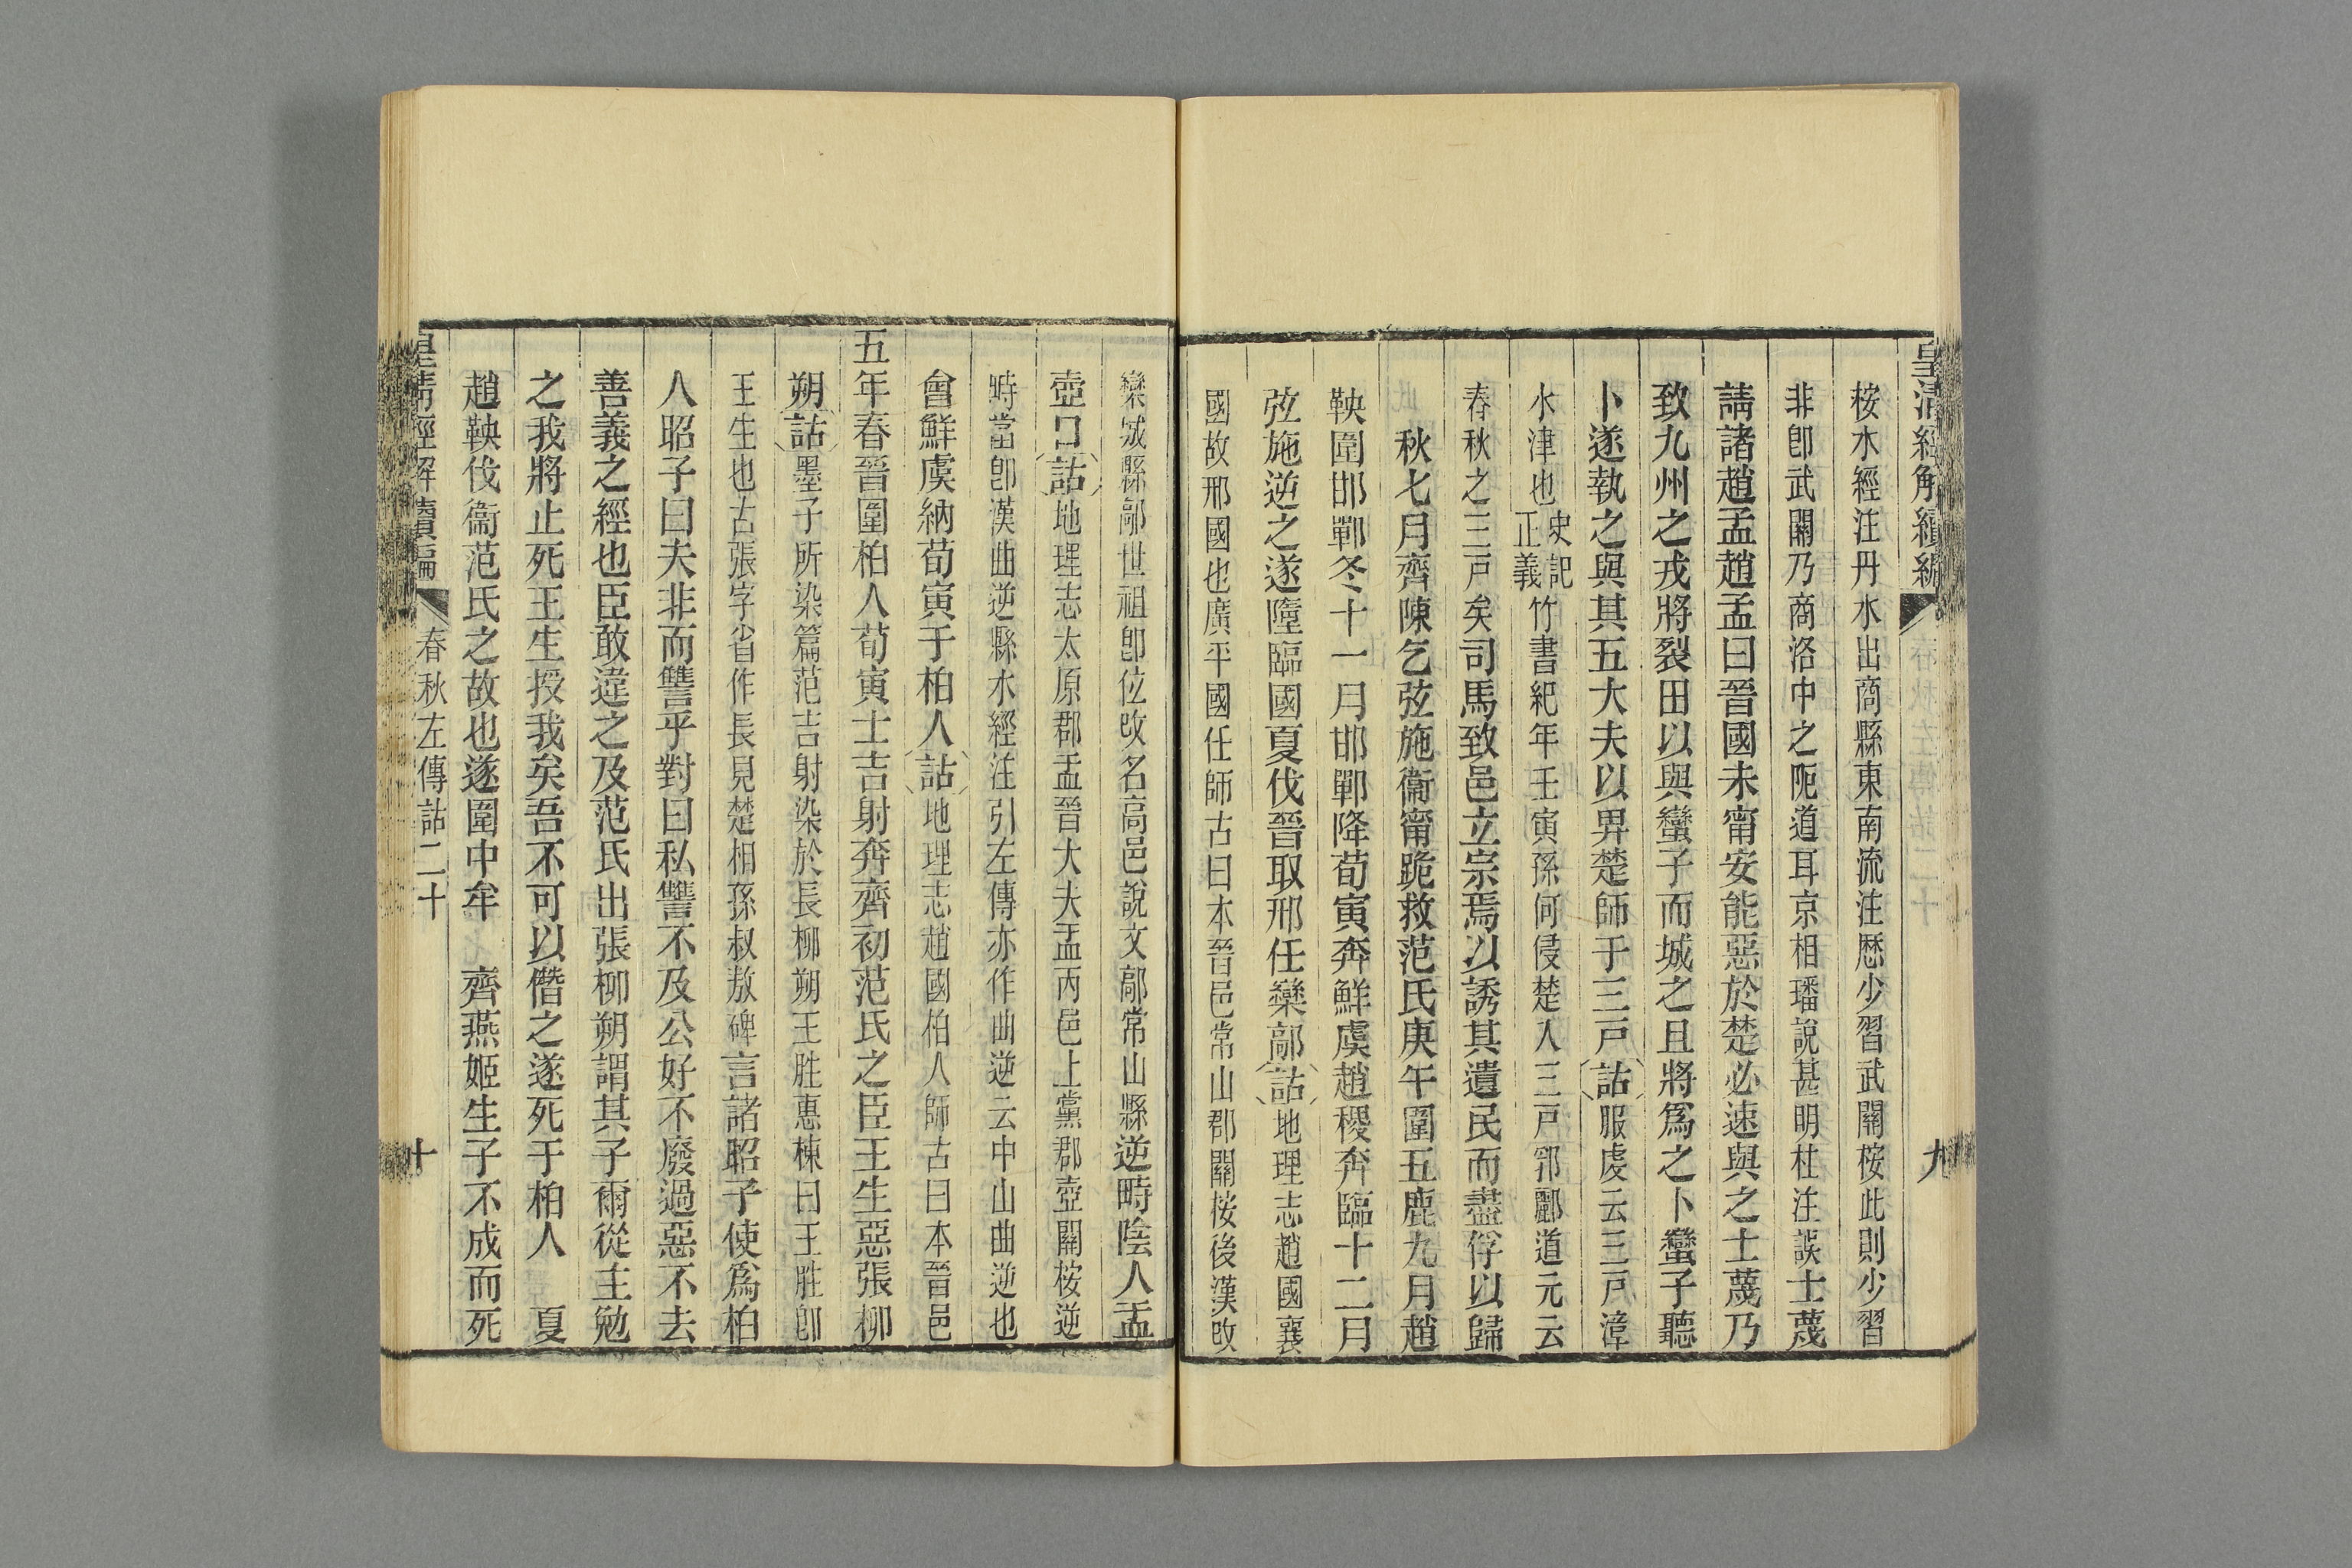 皇清經解續編
春秋左傳詁二十
九
桉水經注丹水出商縣東南流注歷少習武關桉此則少習
非卽武關乃商洛中之阨道耳京相璠說甚明杜注誤士蔑
請諸趙孟趙孟曰晉國未甯安能惡於楚必速與之士蔑乃
致九州之戎將裂田以與蠻子而城之且將爲之卜蠻子聽
卜遂執之與其五大夫以畀楚師于三戸詁服虔云三戸漳
水津也史記正義竹書紀年壬寅孫何侵楚入三戸郛酈道元云
春秋之三戸矣司馬致邑立宗焉以誘其遺民而盡俘以歸
秋七月齊陳乞弦施衞甯跪救范氏庚午圍五鹿九月趙
鞅圍邯鄲冬十一月邯鄲降荀寅奔鮮虞趙稷奔臨十二月
弦施逆之遂墮臨國夏伐晉取邢任欒鄗詁地理志趙國襄
國故邢國也廣平國任師古曰本晉邑常山郡關桉後漢改
欒城縣鄗世祖卽位改名高邑說文鄗常山縣逆畤陰人盂
壺口詁地理志太原郡盂晉大夫盂丙邑上黨郡壺關桉逆
畤當卽漢曲逆縣水經注引左傳亦作曲逆云中山曲逆也
會鮮虞納荀寅于柏人詁地理志趙國伯人師古曰本晉邑
五年春晉圍柏人荀寅士吉射奔齊初范氏之臣王生惡張柳
朔詁墨子所染篇范吉射染於長柳朔王胜惠棟曰王胜卽
王生也古張字省作長見楚相孫叔敖碑言諸昭子使爲柏
人昭子曰夫非而讐乎對曰私讐不及公好不廢過惡不去
善義之經也臣敢違之及范氏出張柳朔謂其子爾從主勉
之我將止死王生授我矣吾不可以僭之遂死于柏人　夏
趙鞅伐衞范氏之故也遂圍中牟　齊燕姬生子不成而死
皇清經解續編
春秋左傳詁二十
十